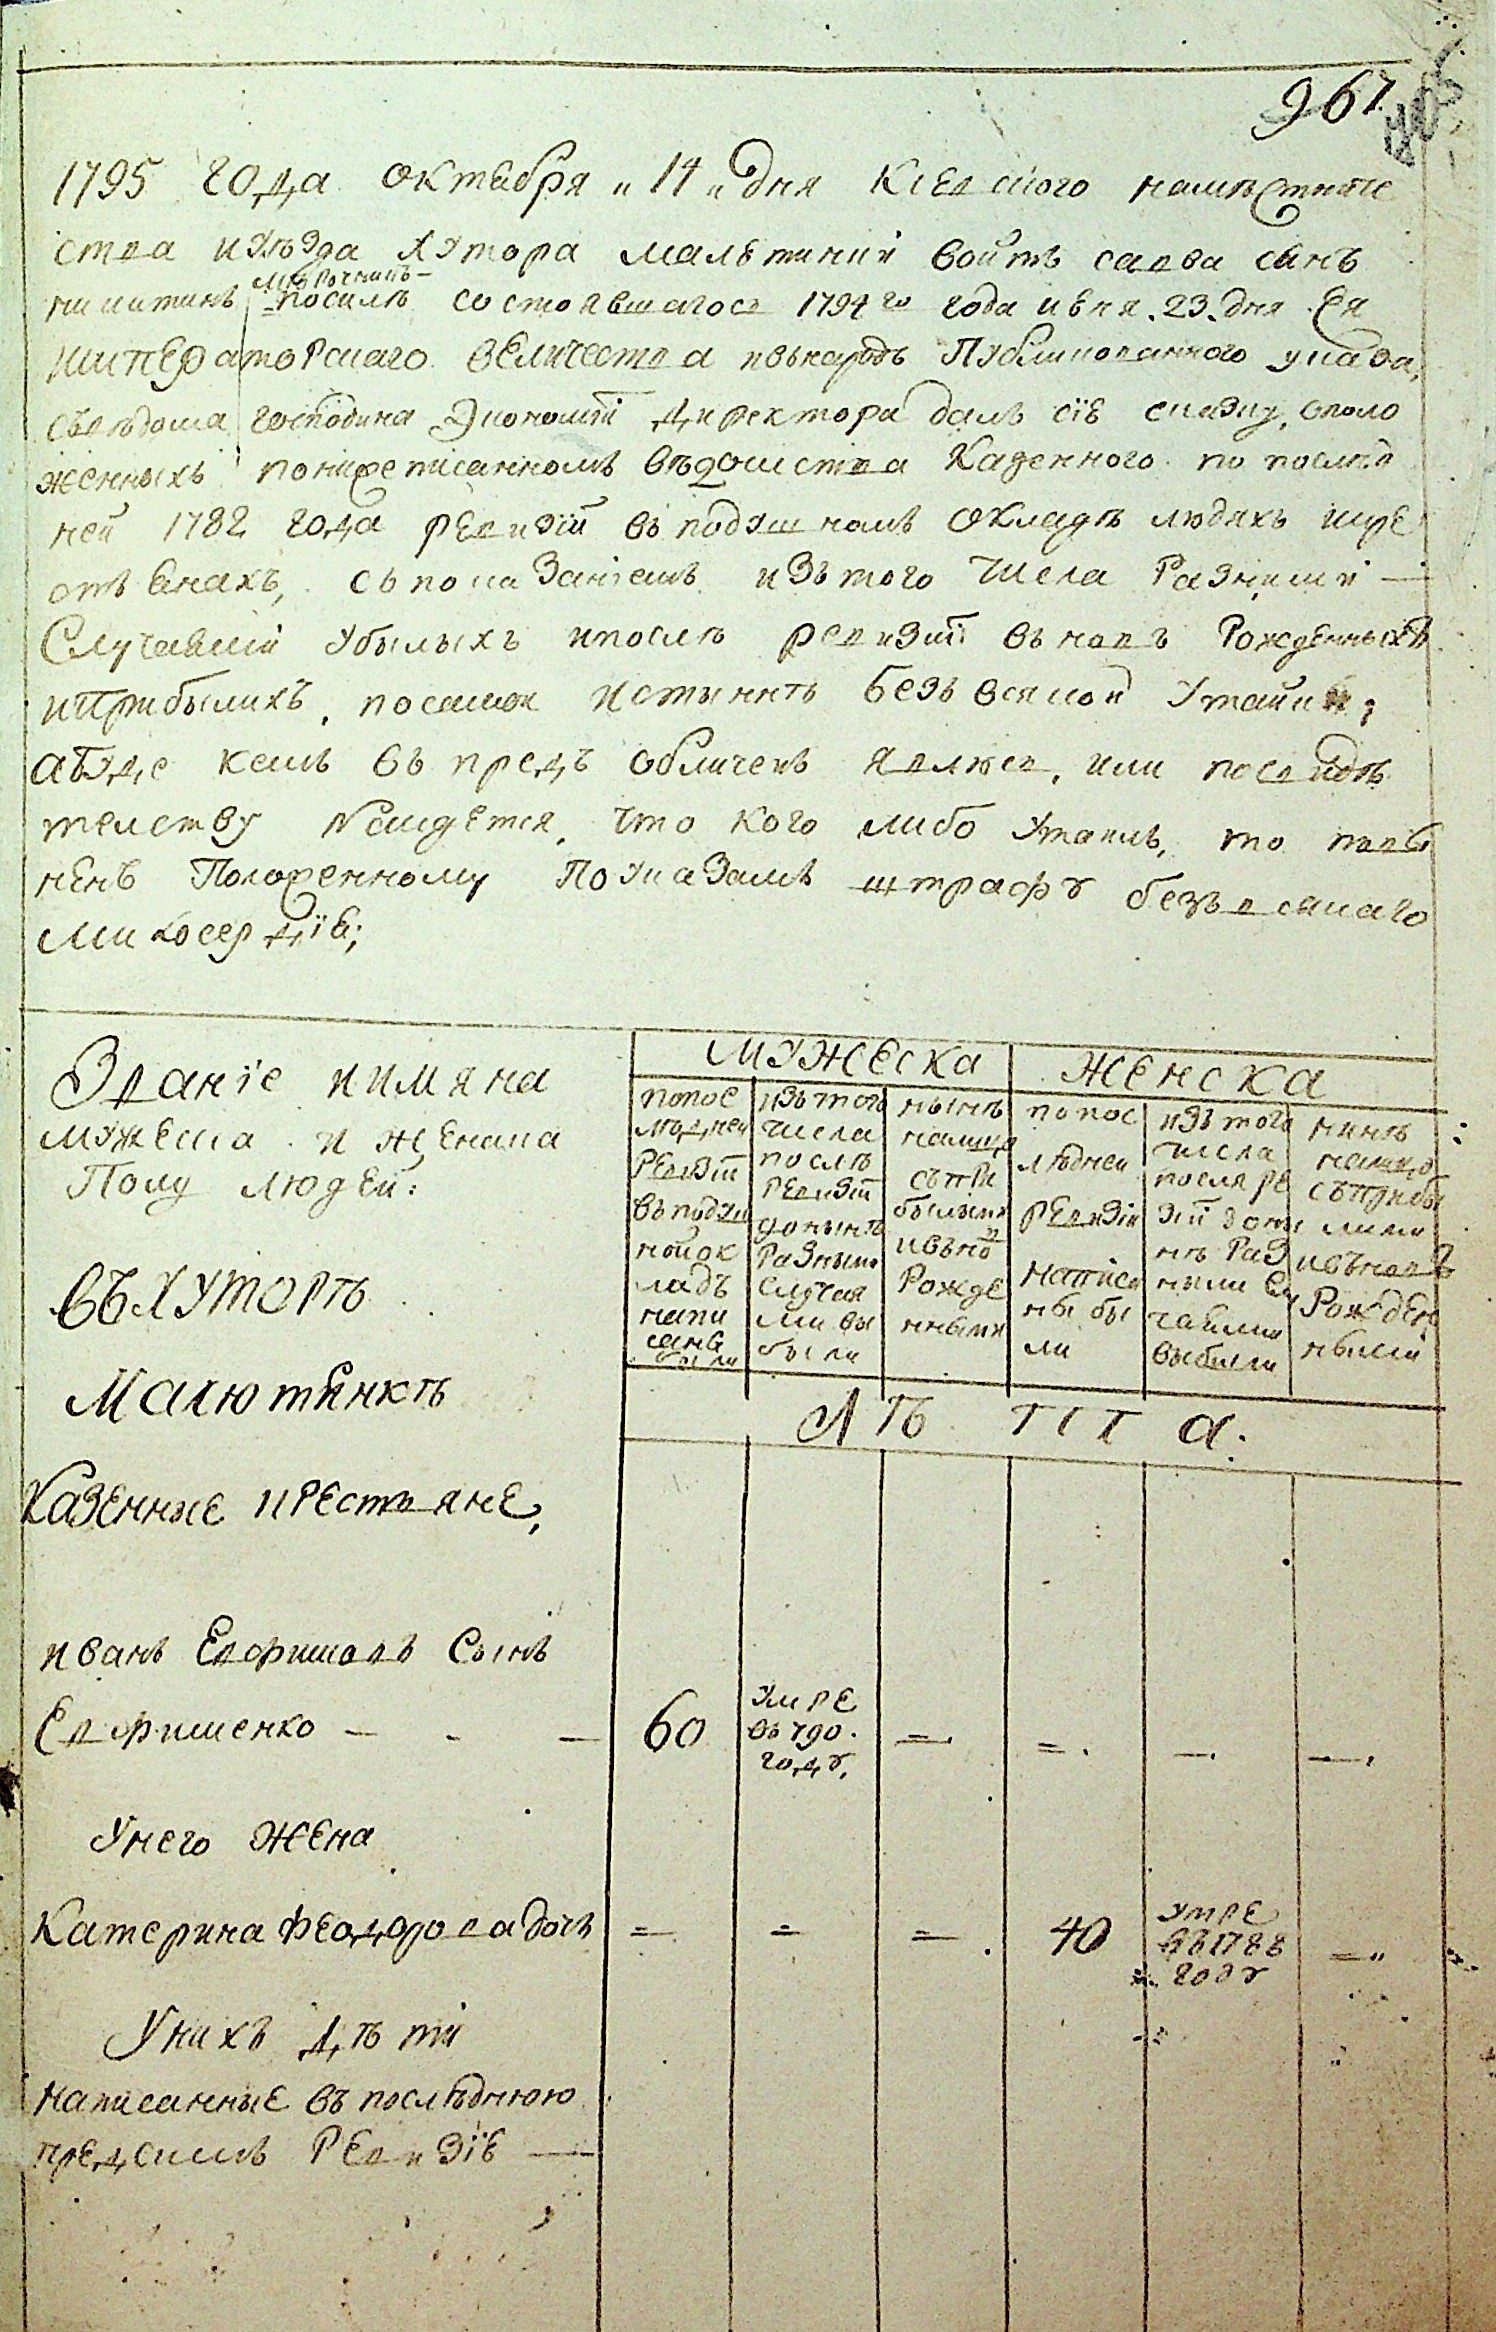 967
1795 года октября „ 14 „ дня Кіевского намѣстниче
ства иуѣзда хутора мальтинки войтъ савва сынъ
никитинъ посилѣ состоявшагося 1794го года июня .23. дня Ея
императорскаго величества ивънародъ Публикованного указа,
съвѣдома господина Экономіи директора далъ сіе сказку, ополо
женныхъ понижеписанномъ вѣдомства Казенного по послѣд
ней 1782 года ревизіи въ подушномъ окладѣ людяхъ икре
стьянахъ, съ показаніемъ изътого числа Разними —
Случаями убылыхъ ипослѣ ревизіи въновъ Рожденныхъ
иприбылихъ, посамой истыннѣ безъ всякой Утайки;
абуде кемъ въ предъ обличенъ явлюся, или посвидѣ
телству Найдется, что кого либо утаилъ, то пови
ненъ Положенному По указамъ штрафу безъ всякаго
милосердіе;
Званіе иимяна
мужеска и женска
Полу людей:
МУЖЕСКА
ЖЕНСКА
попос
лѣдней
Ревизіи
въ подуш
ной ок
ладъ
напи
санѣ
были
изътого
числа
послѣ
Ревизіи
донынѣ
Разными
Случая
ми вы
были
нынѣ
налицо
съ при
былыми
ивъно
в
Рожде
нными
по пос
лѣдней
Ревизіи
написа
ны бы
ли
изъ того
числа
после ре
зіи дони
нѣ Раз
ними Слу
чаями
выбили
нинѣ
налицо
съприбы
лими
ивъновъ
Рожден
ными
въ хуторѣ
Малютинкѣ
ЛѢТА.
Казенние крестьяне,
иванъ Евфимовъ Сынъ
Евфименко — - — 60 умре
въ 790.
году,
Унего жена
Катерина Феодорова дочь = = = 40 умре
въ 1788
году
Унихъ дѣти
написанные въ послѣднюю
предсимъ Ревизіе —